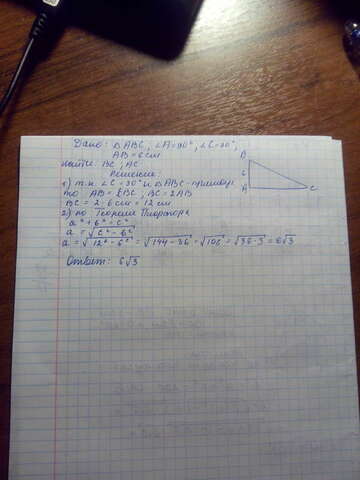 Дано: △ABC, ∠A=90°, ∠C=30°,
AB=6 см
Найти: BC; AC
Решение
1) т.к. ∠C=30° и △ABC-прямоуг.
то AB=½BC, BC=2AB
BC=2·6 см=12 см
2) по Теореме Пифагора
a²+b²=c²
a=√c²-b²
a=√12²-6²=√144-36=√108=√36·3=6√3
Ответ: 6√3
B
6
A
C